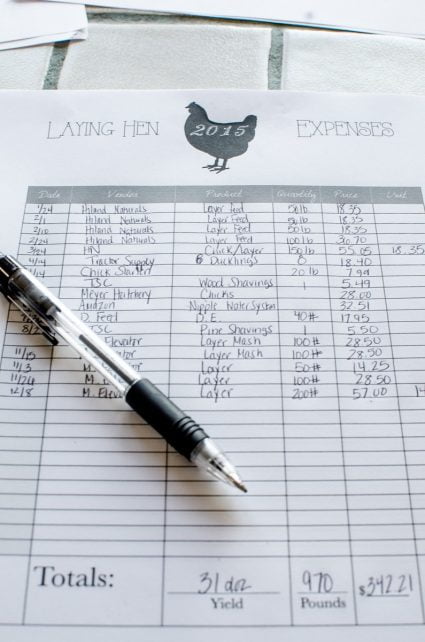 LAYING HEN 2015 EXPENSES
Date Vendor Product Quantity Price Unit
1/24 Hiland Naturals Layer feed 50 lb 18.35
2/1 Hiland Naturals Layer Feed 50 lb 18.35
2/10 Hiland Naturals Layer Feed 50 lb 18.35
2/24 Hiland Naturals Layer Feed 100 lb 36.70
3/24 HN Chick/Layer 150 lb 55.05 18.35
4/4 Tractor Supply 6 Ducklings 18.40
Chick Starter 20 lb 7.99
TSC Wood Shavings 1 5.49
Meyer Hatchery Chicks 28.00
Amazon Nipple Water System 32.51
D. Feed D.E. 40# 17.95
8/2 TSC Pine Shavings 1 5.50
Elevator Layer Mash 100# 28.50
11/15 Layer Mash 100# 28.50
11/3 M. Layer 50# 14.25
11/24 M. Layer 100# 28.50
12/8 M. Layer 200# 57.00
Totals: 31 doz 970 $342.21
Yield Pounds